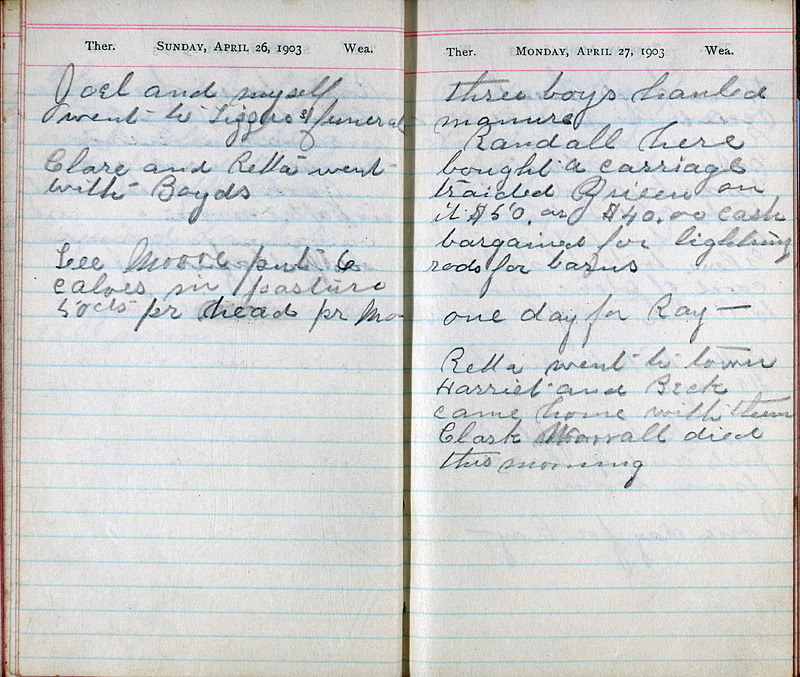 Ther. SUNDAY, APRIL 26, 1903 Wea.
Joel and myself
went to Siggers funeral
Clare and Retta went
with Boyds
Lee Moore put 6
calves in pasture
50cts pr head pr Mo
Ther. MONDAY, APRIL 27, 1903 Wea.
three boys hauled
manure
Randall here
bought a carriage
traided Queen on
it $50. or $40.00 cash
bargained for lighting
rods for barns
one day for Ray—
Retta went to town
Harriet and Beck
came home with them
Clark Worrall died
this morning